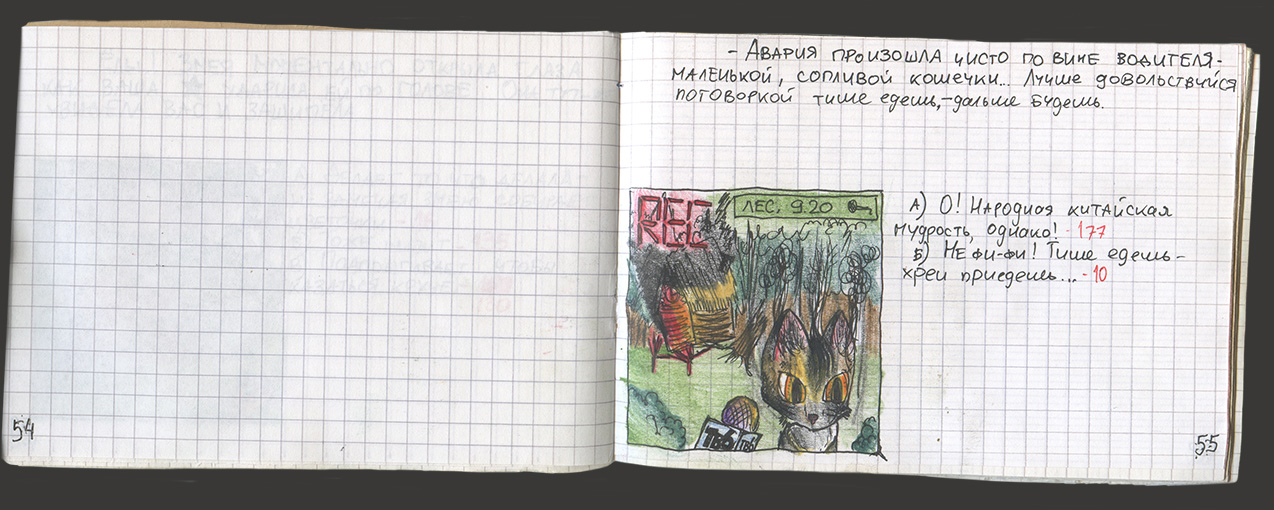 - Авария произошла чисто по вине водителя-
маленькой, сопливой кошечки... Лучше довольствуйся
поговоркой тише едешь,-дальше будешь.
REC
ЛЕС, 9.20
А) О! Народная китайская
мудрость, однако! - 177
Б) Не фи-фи! Тише едешь-
хрен приедешь... - 10
ТБ6
ТБ6
54
55